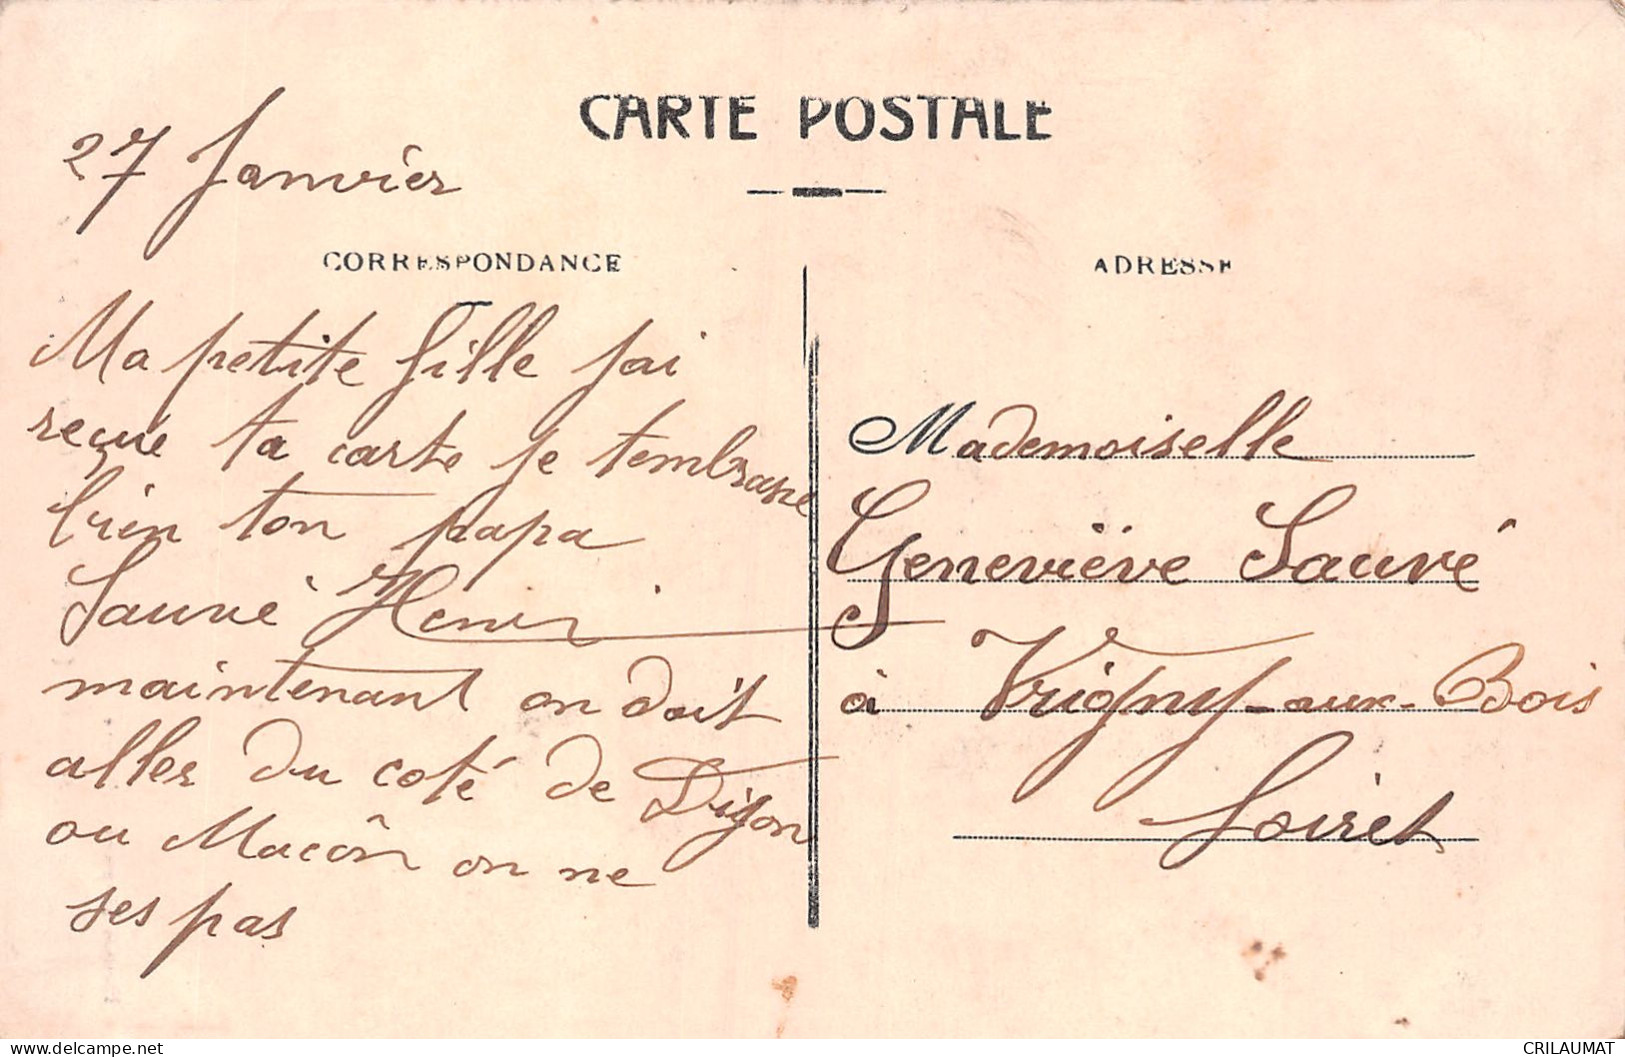 CARTE POSTALE
27 Janvier
CORRESPONDANCE
Ma petite fille jai
reçue ta carte je tembrasse
bien ton papa
Sauvé Henri
maintenant on doit
aller du coté de Dijon
ou Macôn on ne
ses pas
ADRESSE
Mademoiselle
Geneviève Sauvé
à Vrigny-aux-Bois
Loiret
delcampe.net
CRILAUMAT